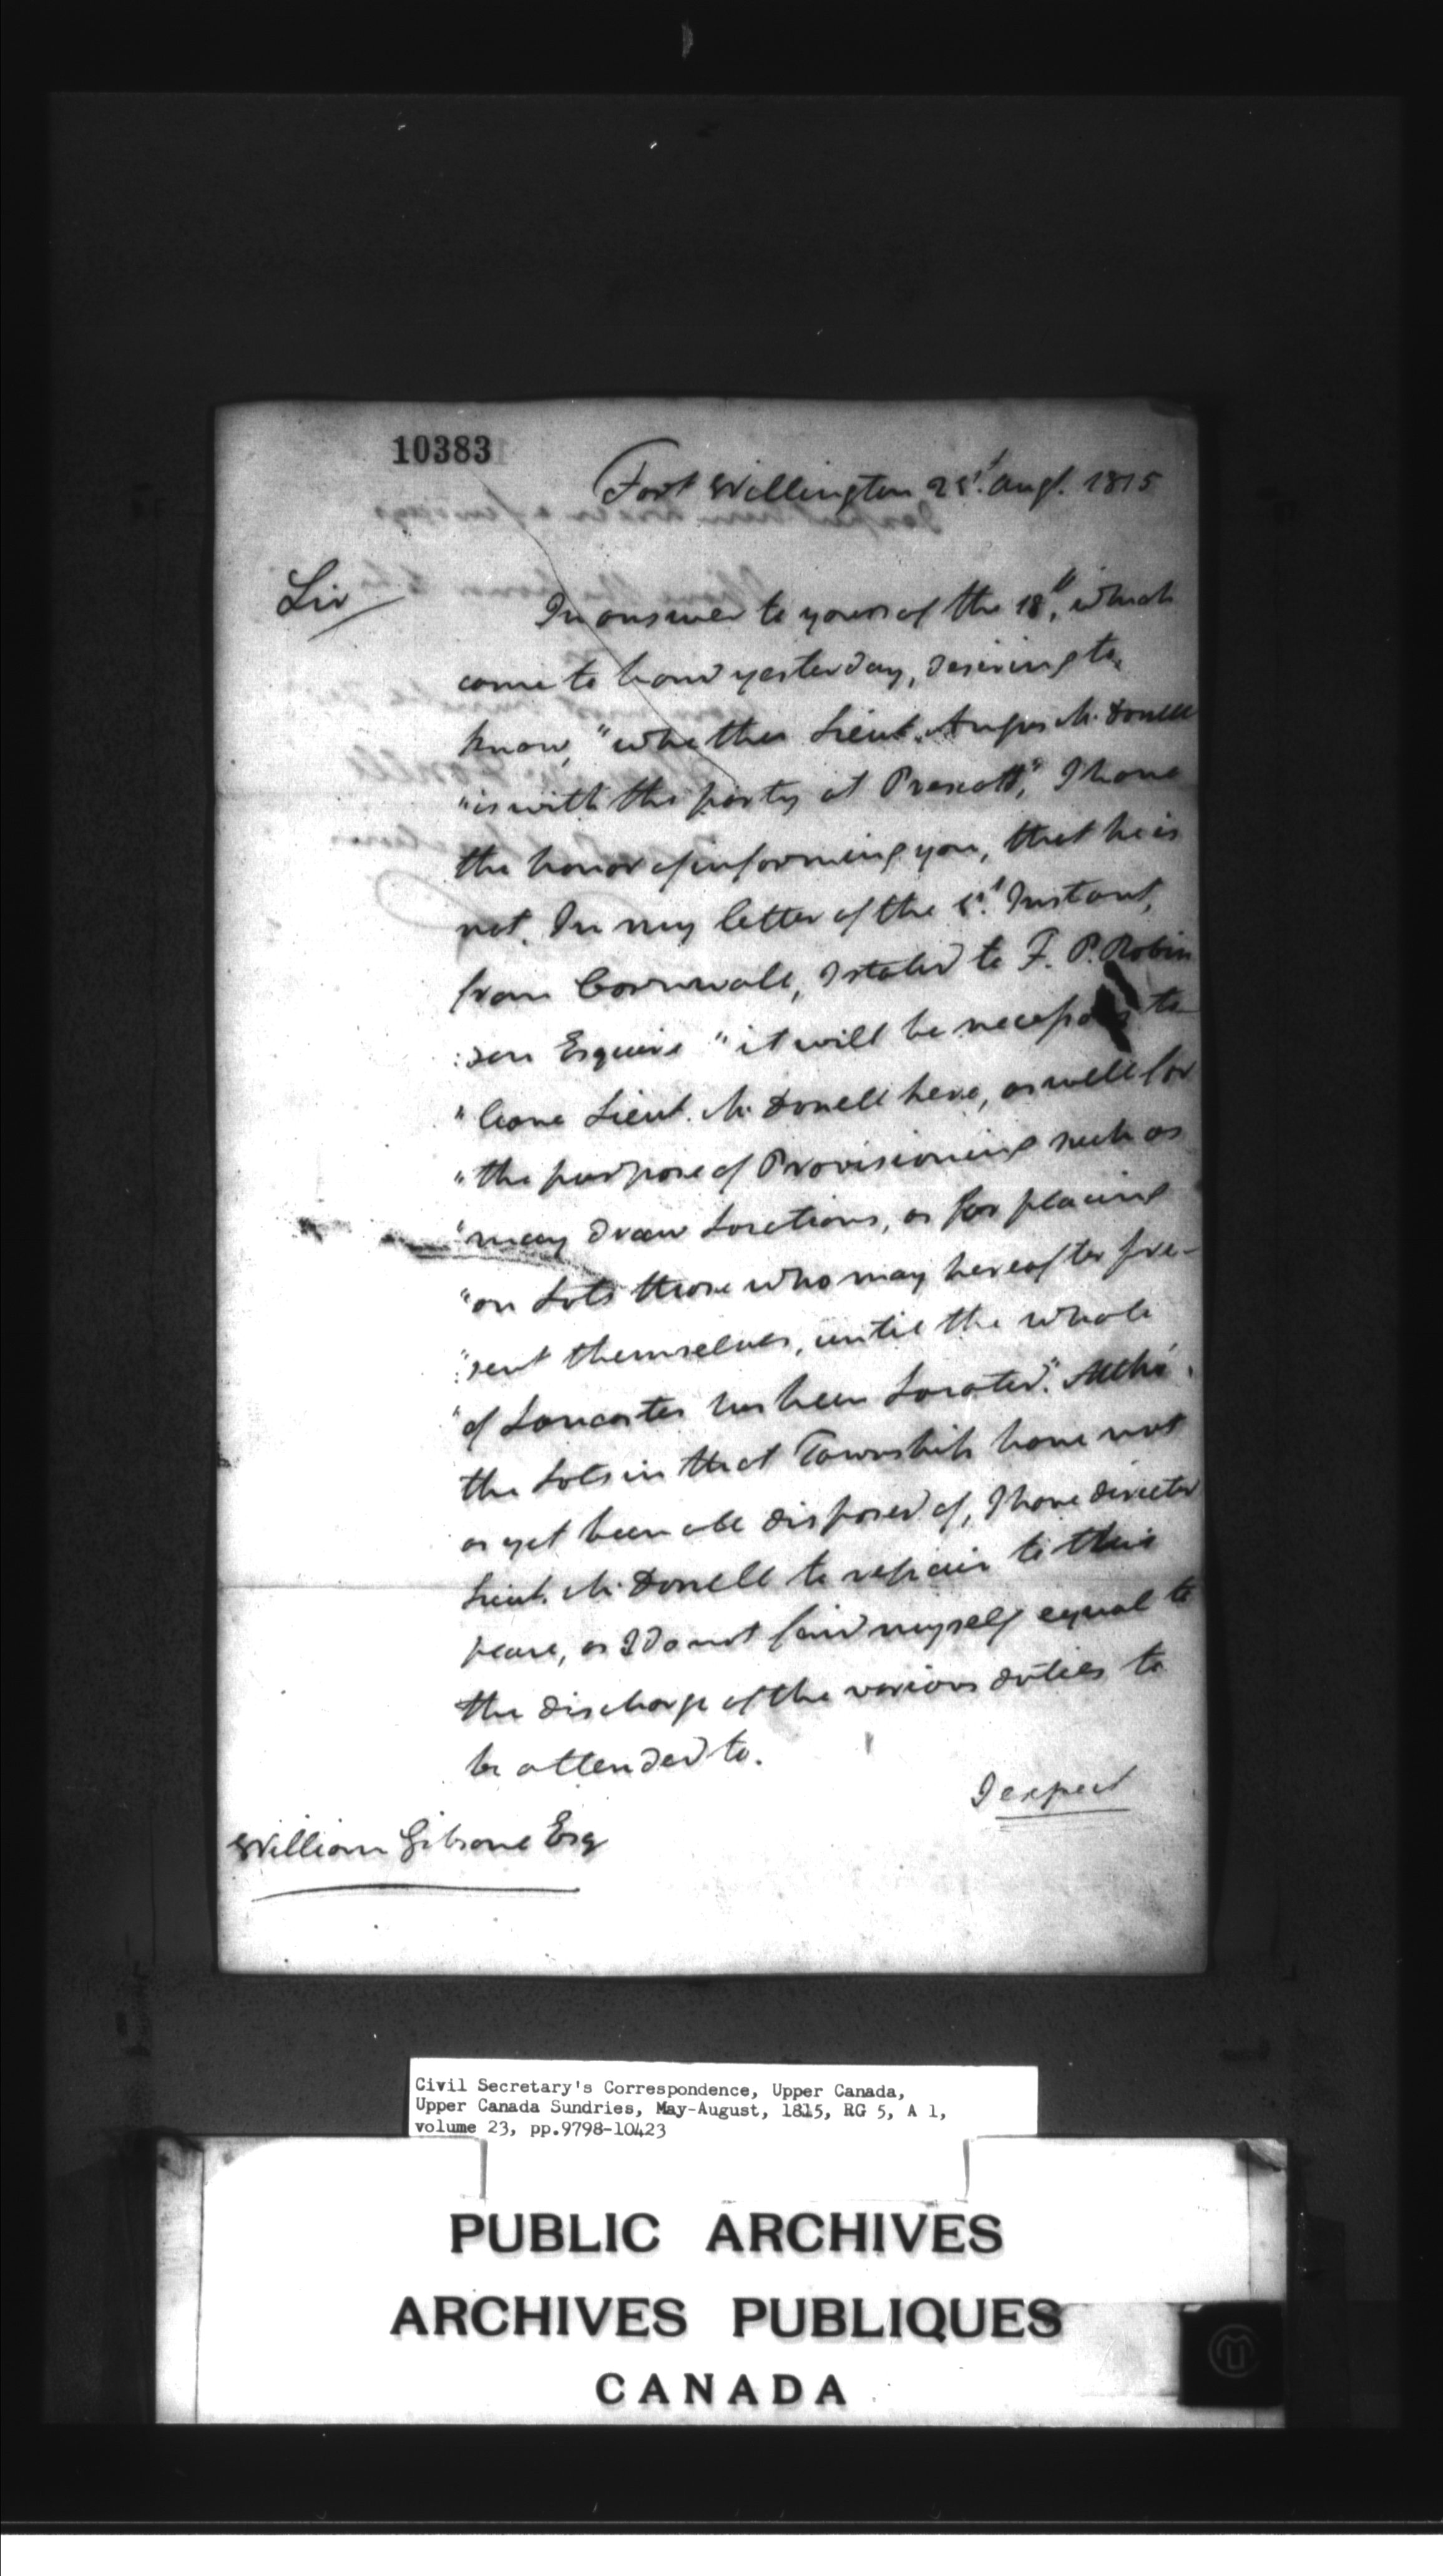 10383
Fort Wellington 21st. Augt. 1815
Sir
In answer to yours of the 18th, which
came to hand yesterday, desiring to
know, "whether Lieut. Angus McDonell
"is with the party at Prescott", I have
the honor of informing you, that he is
not. In my letter of the 1st. Instant,
from Cornwall, I stated to F. P. Robin
:son Esquire "it will be necessary to
"leave Lieut. McDonell here, as well for
"the purpose of Provisioning such as
"may draw Locations, as for placing
"on Lots those who may hereafter pre-
":sent themselves, until the whole
"of Lancaster has been Located." Altho'
the Lots in that Township have not
as yet been all disposed of, I have directed
Lieut. McDonell to repair to this
place, as I do not find myself equal to
the discharge of the various duties to
be attended to.
I expect
William Gibsone Esq
Civil Secretary's Correspondence, Upper Canada,
Upper Canada Sundries, May-August, 1815, RG 5, A 1,
volume 23, pp.9798-10423
PUBLIC ARCHIVES
ARCHIVES PUBLIQUES
CANADA